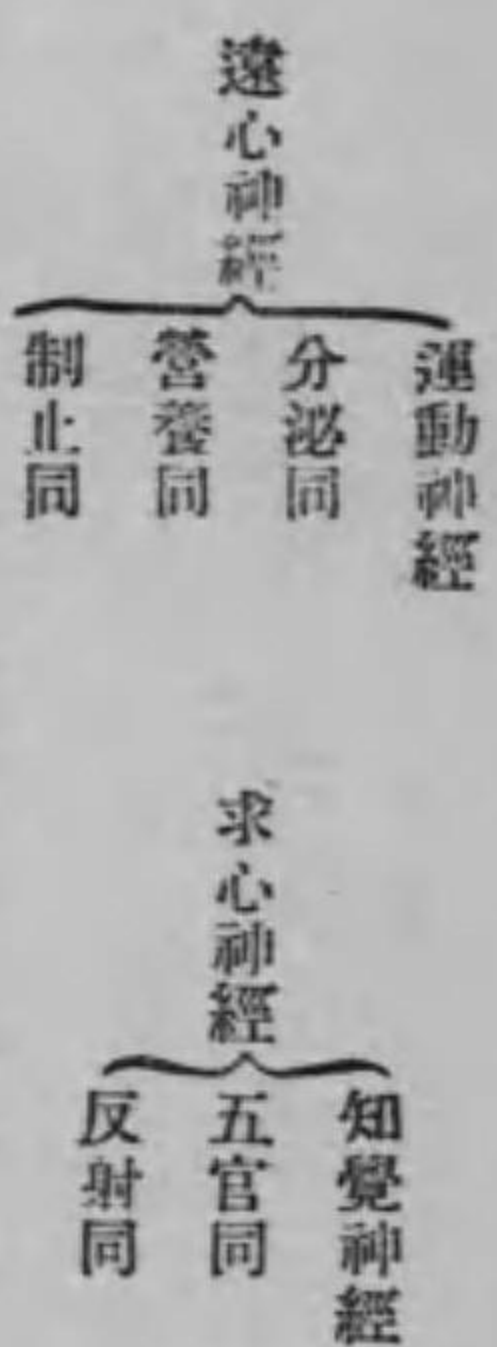 遠心神經
運動神經
分泌同
營養同
制止同
求心神經
知覺神經
五官同
反射同